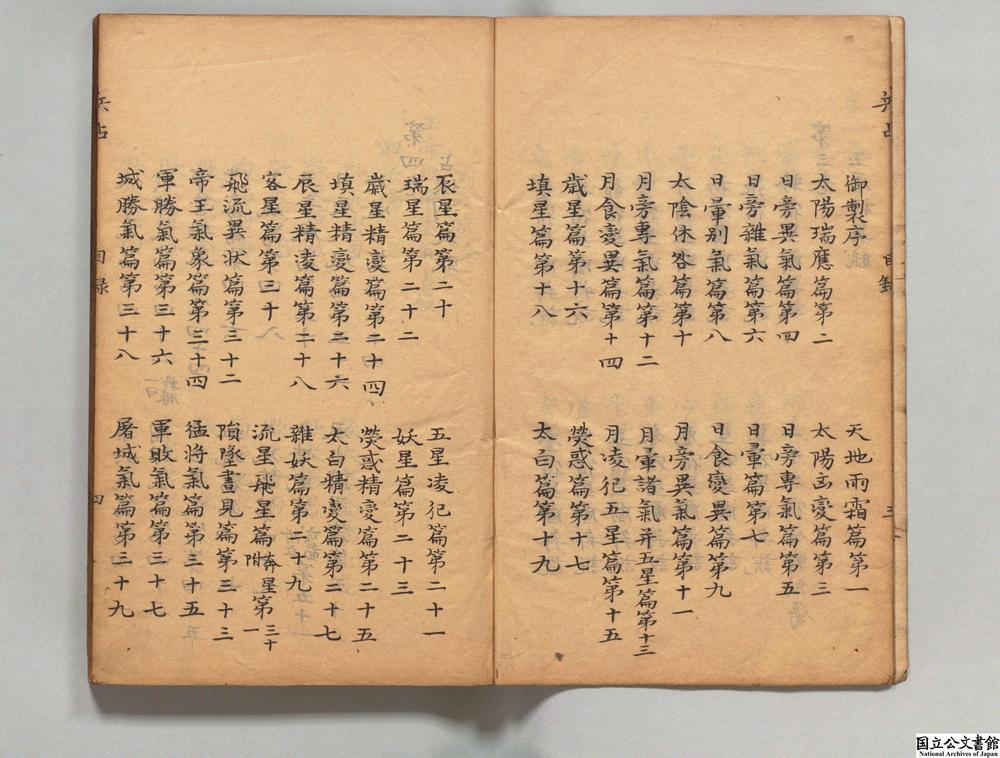 兵占
目録
三
御製序
天地雨霜篇第一
太陽瑞應篇第二
太陽凶變篇第三
日旁異氣篇第四
日旁專氣篇第五
日旁雜氣篇第六
日暈篇第七
日暈别氣篇第八
日食變異篇第九
太陰休咎篇第十
月旁異氣篇第十一
月旁專氣篇第十二
月暈諸氣并五星篇第十三
月食變異篇第十四
月凌犯五星篇第十五
歲星篇第十六
熒惑篇第十七
填星篇第十八
太白篇第十九
辰星篇第二十
五星凌犯篇第二十一
瑞星篇第二十二
妖星篇第二十三
歲星精變篇第二十四
熒惑精變篇第二十五
填星精變篇第二十六
太白精變篇第二十七
辰星精凌篇第二十八
雜妖篇第二十九
客星篇第三十
流星飛星篇附奔星第三十一
飛流異狀篇第三十二
隕墜晝見篇第三十三
帝王氣象篇第三十四
猛將氣篇第三十五
軍勝氣篇第三十六
軍敗氣篇第三十七
城勝氣篇第三十八
屠城氣篇第三十九
兵占
目録
四
国立公文書館
National Archives of Japan